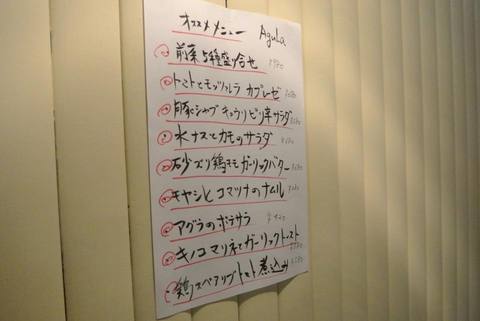 オススメメニュー Agula
前菜5種盛り合せ
トマトとモッツァレラ カプレーゼ
豚しゃぶ キュウリ ピリ辛サラダ
水ナスとカモのサラダ
砂ズリ鶏モモ ガーリックバター
モヤシとコマツナのナムル
アグラのポテサラ
キノコマリネとガーリックトースト
鶏スペアリブトマト煮込み